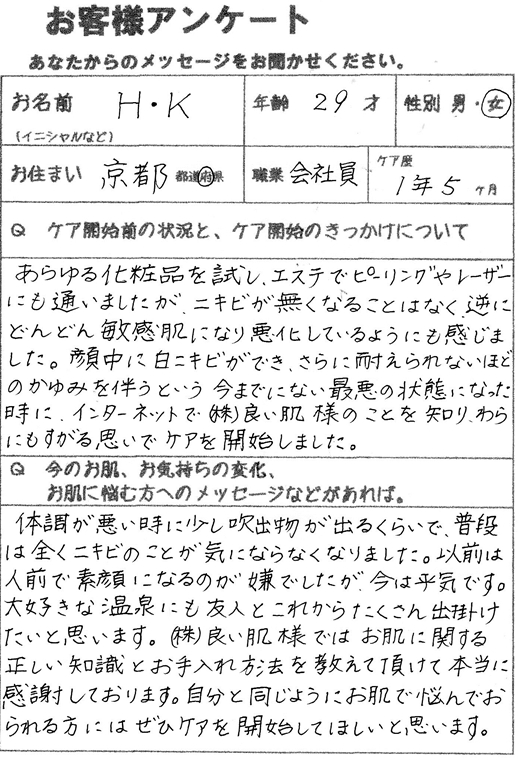 お客様アンケート
あなたからのメッセージをお聞かせください。
お名前 H・K 年齢 29 才 性別 男・女
(イニシャルなど)
お住まい 京都 都道府県 職業 会社員 ケア歴 1年5ヶ月
Q ケア開始前の状況と、ケア開始のきっかけについて
あらゆる化粧品を試し、エステでピーリングやレーザー
にも通いましたが、ニキビが無くなることはなく、逆に
どんどん敏感肌になり悪化しているようにも感じま
した。顔中に白ニキビができ、さらに耐えられないほど
のかゆみを伴うという今までにない最悪の状態になった
時に、インターネットで(株)良い肌様のことを知り、わら
にもすがる思いでケアを開始しました。
Q 今のお肌、お気持ちの変化、
お肌に悩む方へのメッセージなどがあれば。
体調が悪い時に少し吹出物が出るくらいで、普段
は全くニキビのことが気にならなくなりました。以前は
人前で素顔になるのが嫌でしたが、今は平気です。
大好きな温泉にも友人とこれからたくさん出掛け
たいと思います。(株)良い肌様ではお肌に関する
正しい知識とお手入れ方法を教えて頂けて本当に
感謝しております。自分と同じようにお肌で悩んでお
られる方にはぜひケアを開始してほしいと思います。